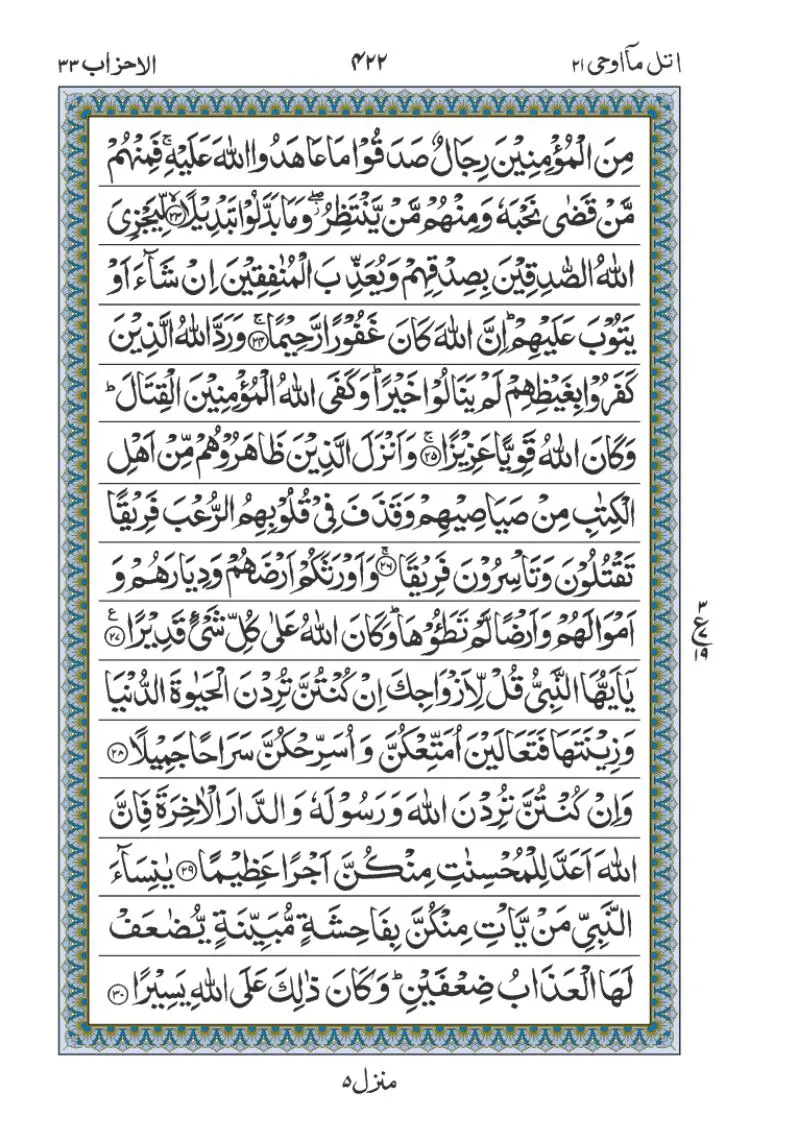 اتل مآاوحی ۲۱ ۴۲۲ الاحزاب ۳۳
مِنَ الْمُؤْمِنِیْنَ رِجَالٌ صَدَقُوْا مَا عَاهَدُوا اللهَ عَلَیْهِ ۚ فَمِنْهُمْ
مَّنْ قَضٰی نَحْبَهٗ وَمِنْهُمْ مَّنْ یَّنْتَظِرُ ۖ وَمَا بَدَّلُوْا تَبْدِیْلًا ﴿۲۳﴾ۙ لِّیَجْزِیَ
اللهُ الصّٰدِقِیْنَ بِصِدْقِهِمْ وَیُعَذِّبَ الْمُنٰفِقِیْنَ اِنْ شَآءَ اَوْ
یَتُوْبَ عَلَیْهِمْ ؕ اِنَّ اللهَ کَانَ غَفُوْرًا رَّحِیْمًا ﴿۲۴﴾ۚ وَرَدَّ اللهُ الَّذِیْنَ
کَفَرُوْا بِغَیْظِهِمْ لَمْ یَنَالُوْا خَیْرًا ؕ وَکَفَی اللهُ الْمُؤْمِنِیْنَ الْقِتَالَ ؕ
وَکَانَ اللهُ قَوِیًّا عَزِیْزًا ﴿۲۵﴾ۚ وَاَنْزَلَ الَّذِیْنَ ظَاهَرُوْهُمْ مِّنْ اَهْلِ
الْکِتٰبِ مِنْ صَیَاصِیْهِمْ وَقَذَفَ فِیْ قُلُوْبِهِمُ الرُّعْبَ فَرِیْقًا
تَقْتُلُوْنَ وَتَاْسِرُوْنَ فَرِیْقًا ﴿۲۶﴾ۚ وَاَوْرَثَکُمْ اَرْضَهُمْ وَدِیَارَهُمْ وَ
اَمْوَالَهُمْ وَاَرْضًا لَّمْ تَطَـُٔوْهَا ؕ وَکَانَ اللهُ عَلٰی کُلِّ شَیْءٍ قَدِیْرًا ﴿۲۷﴾ ع
۳
ع ۷
۱۹
یٰۤاَیُّهَا النَّبِیُّ قُلْ لِّاَزْوَاجِكَ اِنْ کُنْتُنَّ تُرِدْنَ الْحَیٰوةَ الدُّنْیَا
وَزِیْنَتَهَا فَتَعَالَیْنَ اُمَتِّعْکُنَّ وَاُسَرِّحْکُنَّ سَرَاحًا جَمِیْلًا ﴿۲۸﴾
وَاِنْ کُنْتُنَّ تُرِدْنَ اللهَ وَرَسُوْلَهٗ وَالدَّارَ الْاٰخِرَةَ فَاِنَّ
اللهَ اَعَدَّ لِلْمُحْسِنٰتِ مِنْکُنَّ اَجْرًا عَظِیْمًا ﴿۲۹﴾ یٰنِسَآءَ
النَّبِیِّ مَنْ یَّاْتِ مِنْکُنَّ بِفَاحِشَةٍ مُّبَیِّنَةٍ یُّضٰعَفْ
لَهَا الْعَذَابُ ضِعْفَیْنِ ؕ وَکَانَ ذٰلِكَ عَلَی اللهِ یَسِیْرًا ﴿۳۰﴾
منزل ۵